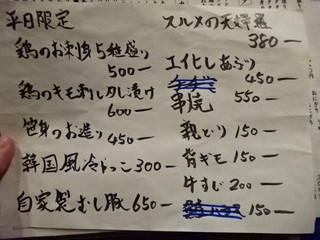 平日限定
鶏のお刺身5種盛り
500ー
鶏のキモ刺し月し漬け
600ー
笹身のお造り
450ー
韓国風冷やっこ300ー
自家製むし豚650ー
スルメの天ぷら
380ー
エイヒレあぶり
450ー
串焼 550ー
親どり150ー
背ギモ150ー
牛すじ200ー
150ー